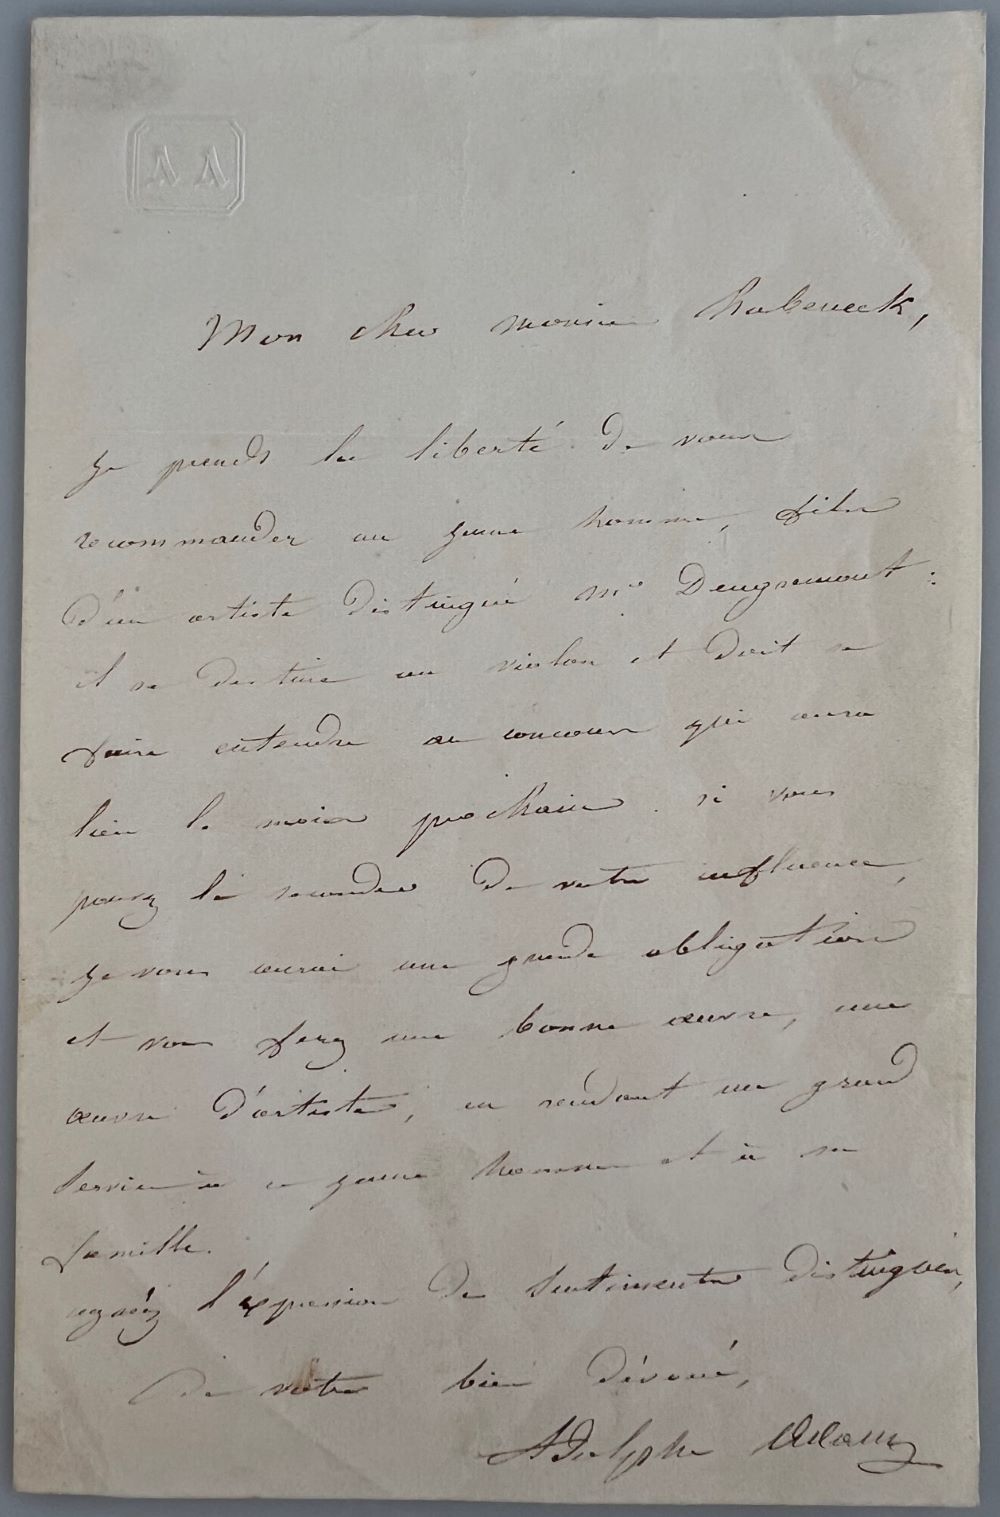 AA
Mon cher monsieur habeneck,
Je prends la liberté de vous
recommander un jeune homme, fils
d'un artiste distingué mr Dengremont :
il se destine au violon et doit se
faire entendre au concours qui aura
lieu le mois prochain. si vous
pouvez le seconder de votre influence,
je vous aurai une grande obligation
et vous ferez une bonne œuvre, une
œuvre d'artiste, en rendant un grand
service à ce jeune homme et à sa
famille.
agréez l'expression de sentiments distingués,
de votre bien dévoué,
Adolphe Adam